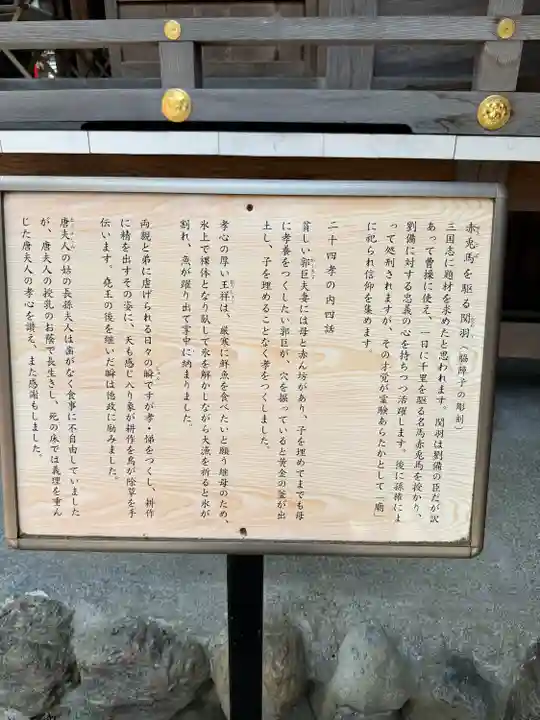 赤兎馬を駆る関羽(脇障子の彫刻)
三国志に題材を求めたと思われます。関羽は劉備の臣だが訳
あって曹操に使え、一日に千里を駆る名馬赤兎馬を授かり、
劉備に対する忠義の心を持ちつつ活躍します。後に孫権によ
って処刑されますが、その才覚が霊験あらたかとして「廟」
に祀られ信仰を集めます。
二十四孝の内四話
貧しい郭巨夫妻には母と赤ん坊があり、子を埋めてまでも母
に孝養をつくしたい郭巨が、穴を掘っていると黄金の釜が出
土し、子を埋めることなく孝をつくしました。
孝心の厚い王祥は、厳寒に鮮魚を食べたいと願う継母のため、
氷上で裸体となり臥して氷を解かしながら大漁を祈ると氷が
割れ、魚が躍り出て掌中に納まりました。
両親と弟に虐げられる日々の瞬ですが孝・悌をつくし、耕作
に精を出すその姿に、天も感じ入り象が耕作を鳥が除草を手
伝います。堯王の後を継いだ瞬は徳政に励みました。
唐夫人の姑の長孫夫人は歯がなく食事に不自由していました
が、唐夫人の授乳のお蔭で長生きし、死の床では義理を重ん
じた唐夫人の孝心を讃え、また感謝もしました。